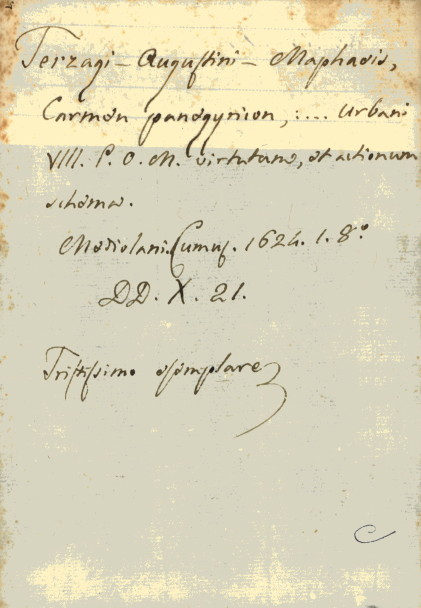 Terzagi - Augustini - Maphaois,
Carmen panegyricon, :... Urbani
VIII. P. O. M. virtutum, et actionum
schema.
Mediolani. 1624. 1. 8.º
DD. X. 21.
Tristissimo esemplare
C